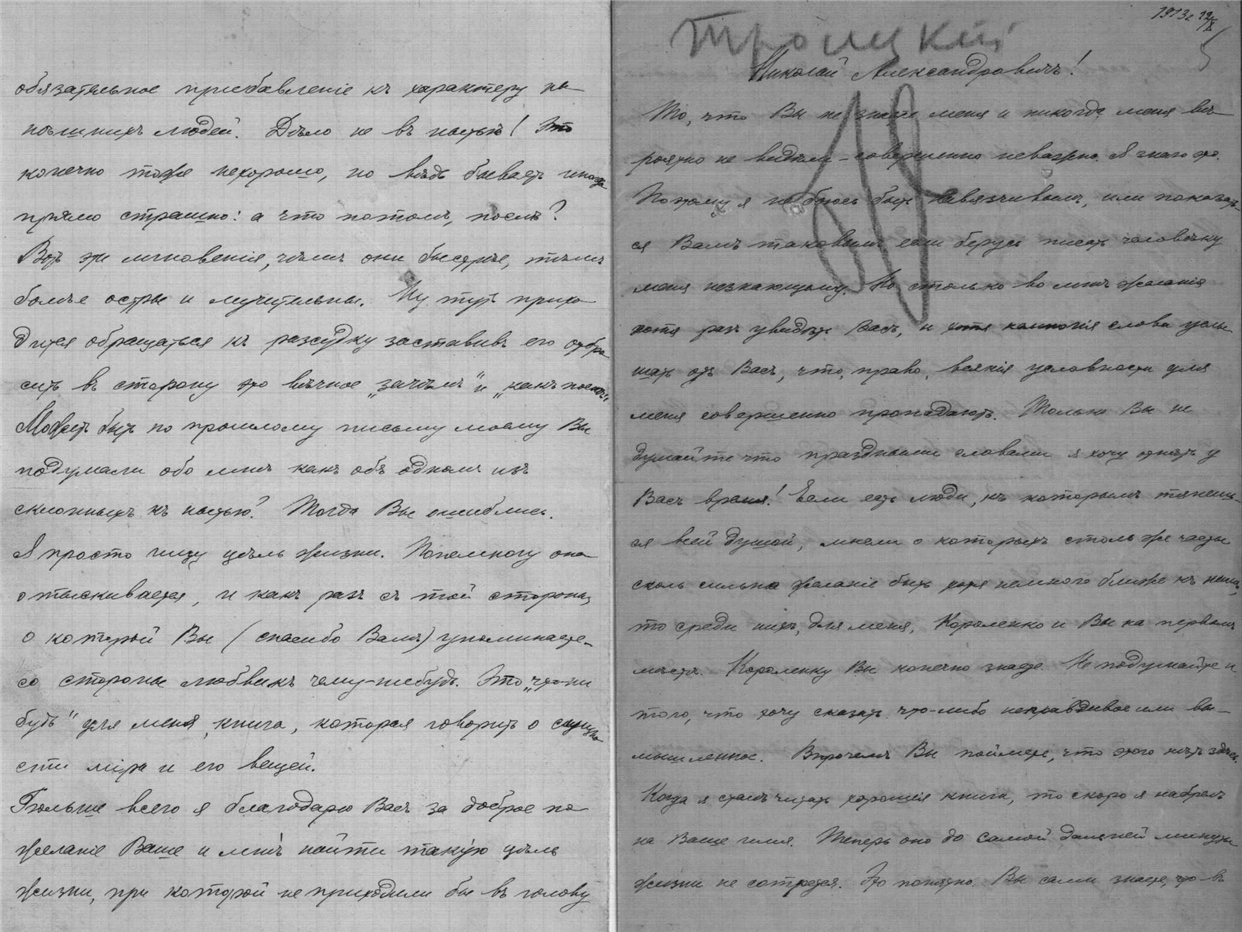 обязательное прибавленіе къ характеру на-
полнихъ людей. Дѣло не въ нытьѣ! Это
конечно тоже нехорошо, но вѣдь бываетъ иногда
прямо страшно: а что потомъ, послѣ?
Вотъ эти мгновенія, чѣмъ они быстрѣе, тѣмъ
болѣе остры и мучительны. Ну тутъ прихо-
дится обращаться къ разсудку заставивъ его отбро-
сить въ сторону это вѣчное „зачѣмъ" и „
Можетъ быть по прошлому письму моему Вы
подумали обо мнѣ какъ объ одномъ изъ
склонныхъ къ нытью? Тогда Вы ошиблись.
Я просто ищу цѣль жизни. Понемногу она
отыскивается, и какъ разъ съ той стороны,
о которой Вы (спасибо Вамъ) упоминаете-
со стороны любви къ чему-нибудь. Это „что-ни
будь" для меня, книга, которая говоритъ о сущно-
сти міра и его вещей.
Больше всего я благодарю Васъ за доброе по-
желаніе Ваше и мнѣ найти такую цѣль
жизни, при которой не приходили бы въ голову
1913 г. 12/X
5
Троицкій
Николай Александровичъ!
То, что Вы не знаете меня и никогда меня вѣ-
роятно не видѣли - совершенно неважно. Я знаю это.
Потому я не боюсь быть навязчивымъ, или показать-
ся Вамъ таковымъ если берусь писать человѣку
меня незнающему. Но столько во мнѣ желанія
хотя разъ увидѣть Васъ, и хотя какія слова услы-
шать отъ Васъ, что, право, всякія условности для
меня совершенно пропадаютъ. Только Вы не
думайте что праздными словами я хочу отнять у
Васъ время! Если есть люди, къ которымъ тянешь-
ся всей душой, мысли о которыхъ столь же часты
сколь сильно желаніе быть хотя немного ближе къ нимъ,
то среди нихъ, для меня, Короленко и Вы на первомъ
мѣстѣ. Короленку Вы конечно знаете. Не подумайте и
того, что хочу сказать что-либо неправдивое или вы-
мышленное. Впрочемъ Вы поймете, что этого нѣтъ здѣсь.
Когда я сталъ читать хорошія книги, то скоро я набрелъ
на Ваше имя. Теперь оно до самой дальней минуты
жизни не сотрется. Это понятно. Вы сами знаете, что въ